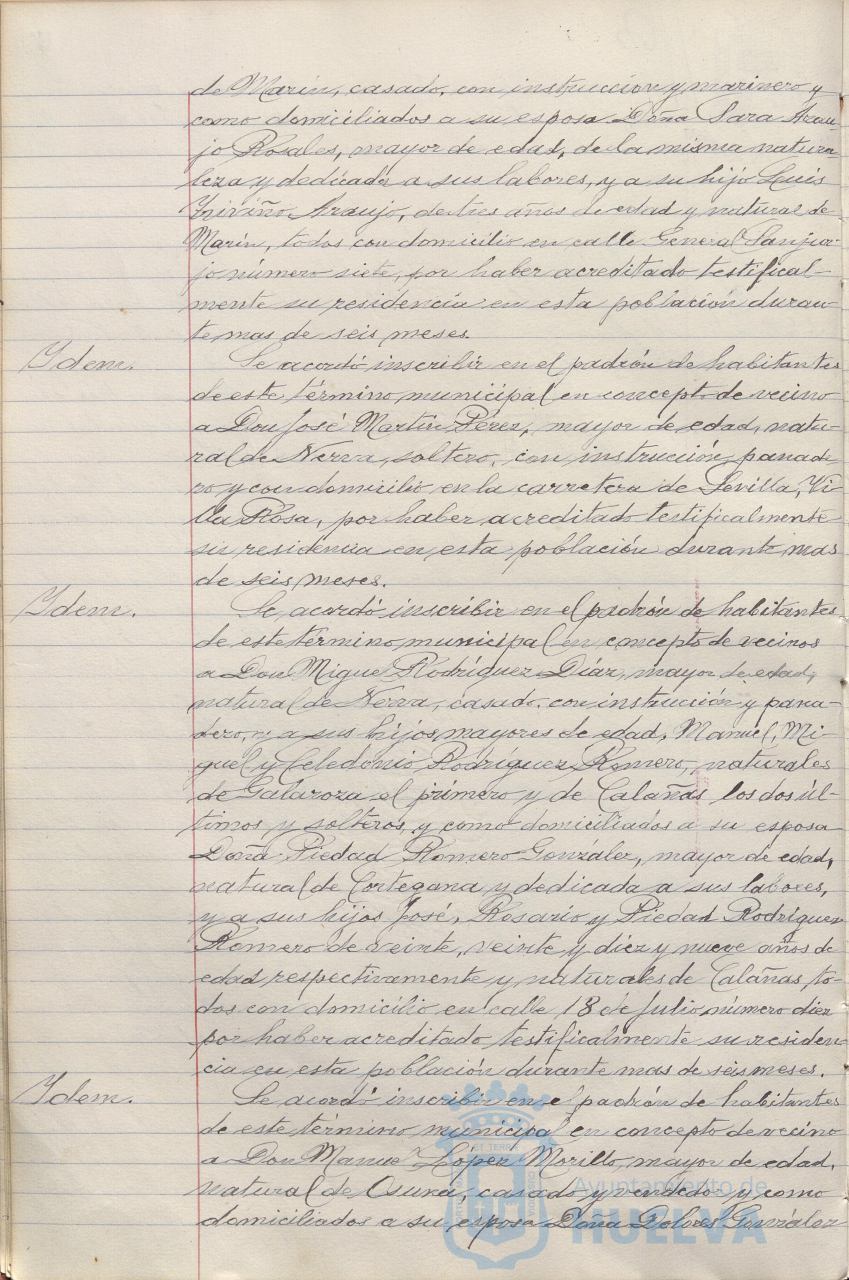 de Marín, casado, con instrucción y marinero y
como domiciliados a su esposa Doña Sara Arau-
jo Rosales, mayor de edad, de la misma natura-
leza y dedicada a sus labores, y a su hijo Luis
Triviño Araujo, de tres años de edad y natural de
Marín, todos con domicilio en calle General Sanjur-
jo número siete, por haber acreditado testifical-
mente su residencia en esta población duran-
te mas de seis meses.
Ydem. Se acordó inscribir en el padrón de habitantes
de este término municipal en concepto de vecino
a Don José Martín Pérez, mayor de edad, natu-
ral de Nerva, soltero, con instrucción, panade-
ro y con domicilio en la carretera de Sevilla, Vi-
lla Rosa, por haber acreditado testificalmente
su residencia en esta población durante mas
de seis meses.
Ydem. Se acordó inscribir en el padrón de habitantes
de este término municipal en concepto de vecinos
a Don Miguel Rodríguez Díaz, mayor de edad,
natural de Nerva, casado, con instrucción y pana-
dero, y a sus hijos mayores de edad, Manuel, Mi-
guel y Celedonio Rodríguez Romero, naturales
de Galaroza el primero y de Calañas los dos úl-
timos y solteros, y como domiciliados a su esposa
Doña Piedad Romero González, mayor de edad,
natural de Cortegana y dedicada a sus labores,
y a sus hijos José, Rosario y Piedad Rodríguez
Romero de veinte, veinte y diez y nueve años de
edad respectivamente y naturales de Calañas, to-
dos con domicilio en calle 18 de Julio número diez
por haber acreditado testificalmente su residen-
cia en esta población durante mas de seis meses.
Ydem. Se acordó inscribir en el padrón de habitantes
de este término municipal en concepto de vecino
a Don Manuel López Morillo, mayor de edad,
natural de Osuna, casado y vendedo y como
domiciliados a su esposa Doña Dolores González
Ayuntamiento de
HUELVA